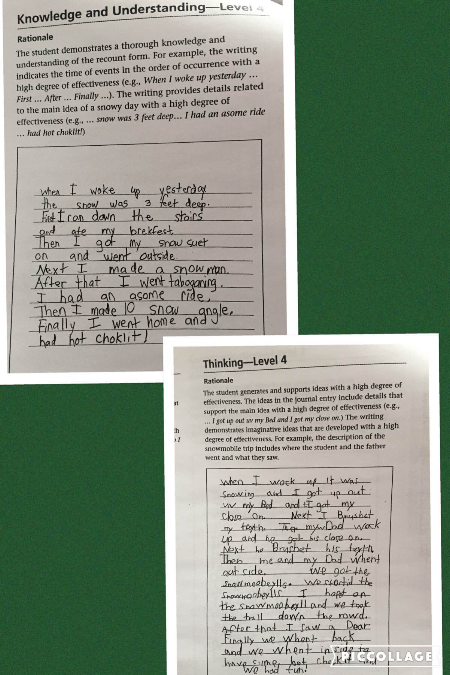 Knowledge and Understanding—Level 4
Rationale
The student demonstrates a thorough knowledge and
understanding of the recount form. For example, the writing
indicates the time of events in the order of occurrence with a
high degree of effectiveness (e.g., When I woke up yesterday …
First … After … Finally …). The writing provides details related
to the main idea of a snowy day with a high degree of
effectiveness (e.g., … snow was 3 feet deep… I had an asome ride
… had hot choklit!)
when I woke up yesterday
the snow was 3 feet deep.
First I ran down the stairs
and ate my brekfest.
Then I got my snow suet
on and went outside.
Next I made a snow man.
After that I went taboganing.
I had an asome ride.
Then I made 10 snow angle.
Finally I went home and
had hot choklit!
Thinking—Level 4
Rationale
The student generates and supports ideas with a high degree of
effectiveness. The ideas in the journal entry include details that
support the main idea with a high degree of effectiveness (e.g.,
… I got up out uv my Bed and I got my close on.) The writing
demonstrates imaginative ideas that are developed with a high
degree of effectiveness. For example, the description of the
snowmobile trip includes where the student and the father
went and what they saw.
when I wock up It was
snowing and I got up out
uv my Bed and I got my
close on. Next I Brushet
my teyth. my Dad wock
up and he got his close on.
Next he Brushet his teyth
Then me and my Dad whent
out side. We got the
We the
I hopt on
the and we took
the trall down the rowd.
After that I saw a Dear
Finally we whent back
and we whent in side to
have sume hot and
we had fun.
PICCOLLAGE